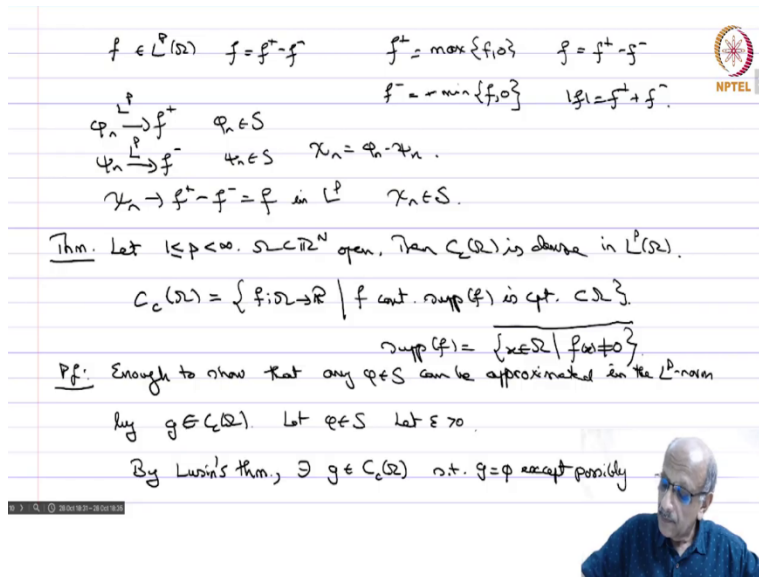 f ∈ L^p(Ω)   f = f⁺ - f⁻   f⁺ = max {f,0}   f = f⁺ - f⁻
NPTEL
f⁻ = - min {f,0}   |f| = f⁺ + f⁻.
φₙ →^{L^p} f⁺   φₙ ∈ S
ψₙ →^{L^p} f⁻   ψₙ ∈ S   χₙ = φₙ - ψₙ .
χₙ → f⁺ - f⁻ = f in L^p   χₙ ∈ S.
Thm. Let 1 ≤ p < ∞. Ω ⊂ ℝ^N open, Then C_c(Ω) is dense in L^p(Ω).
C_c(Ω) = { f: Ω → ℝ | f cont. supp(f) is cpt. ⊂ Ω }.
supp(f) = \overline{{x ∈ Ω | f(x) ≠ 0}}
Pf: Enough to show that any φ ∈ S can be approximated in the L^p-norm
by g ∈ C_c(Ω). Let φ ∈ S Let ε > 0 .
By Lusin's thm., ∃ g ∈ C_c(Ω) s.t. g = φ except possibly